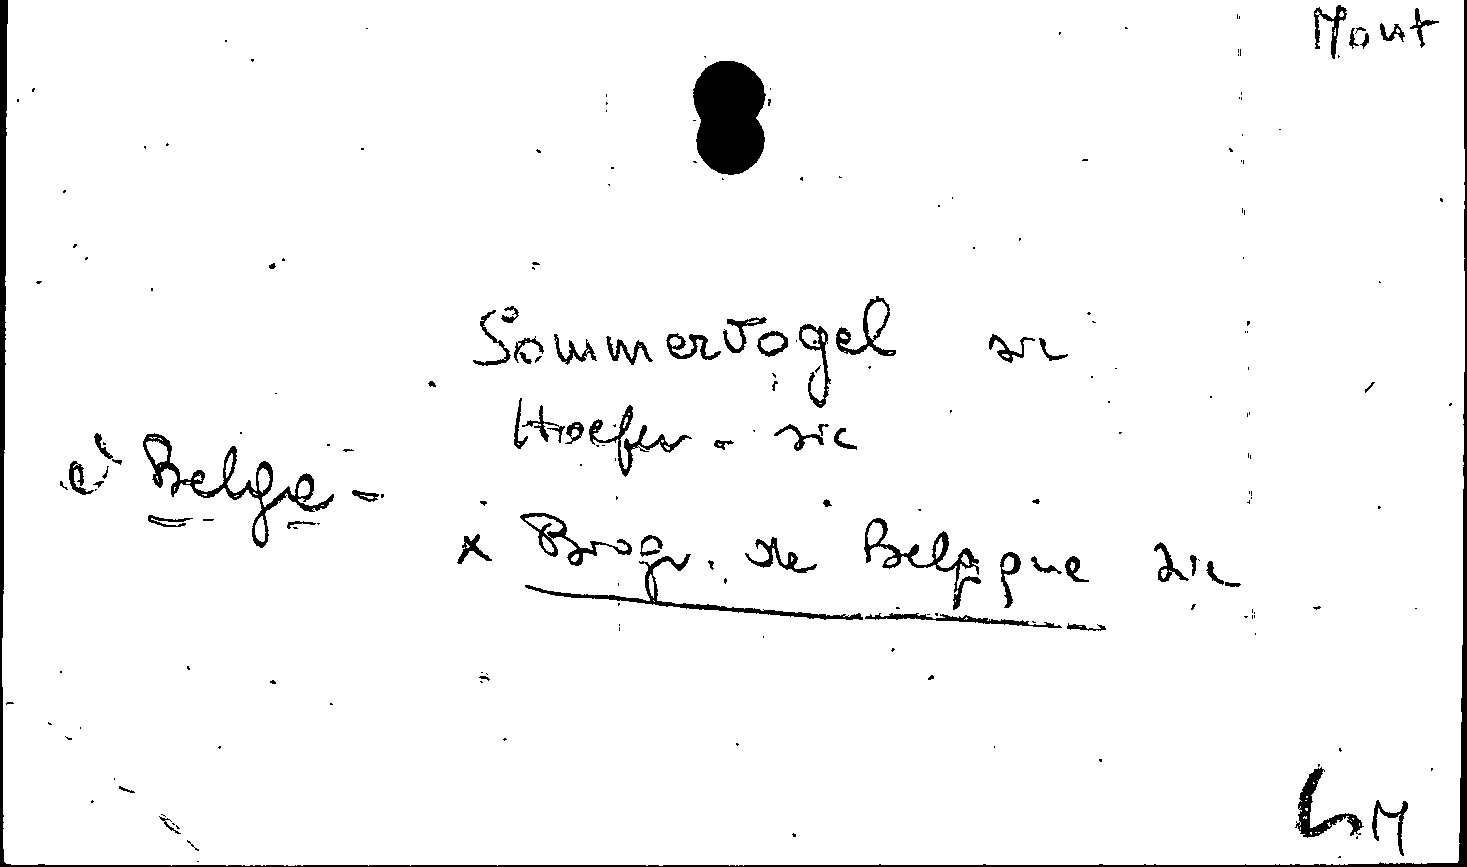 Mout
Sommervogel sic
Hoefer - sic
è Belge -
x Biogr. de Belgique sic